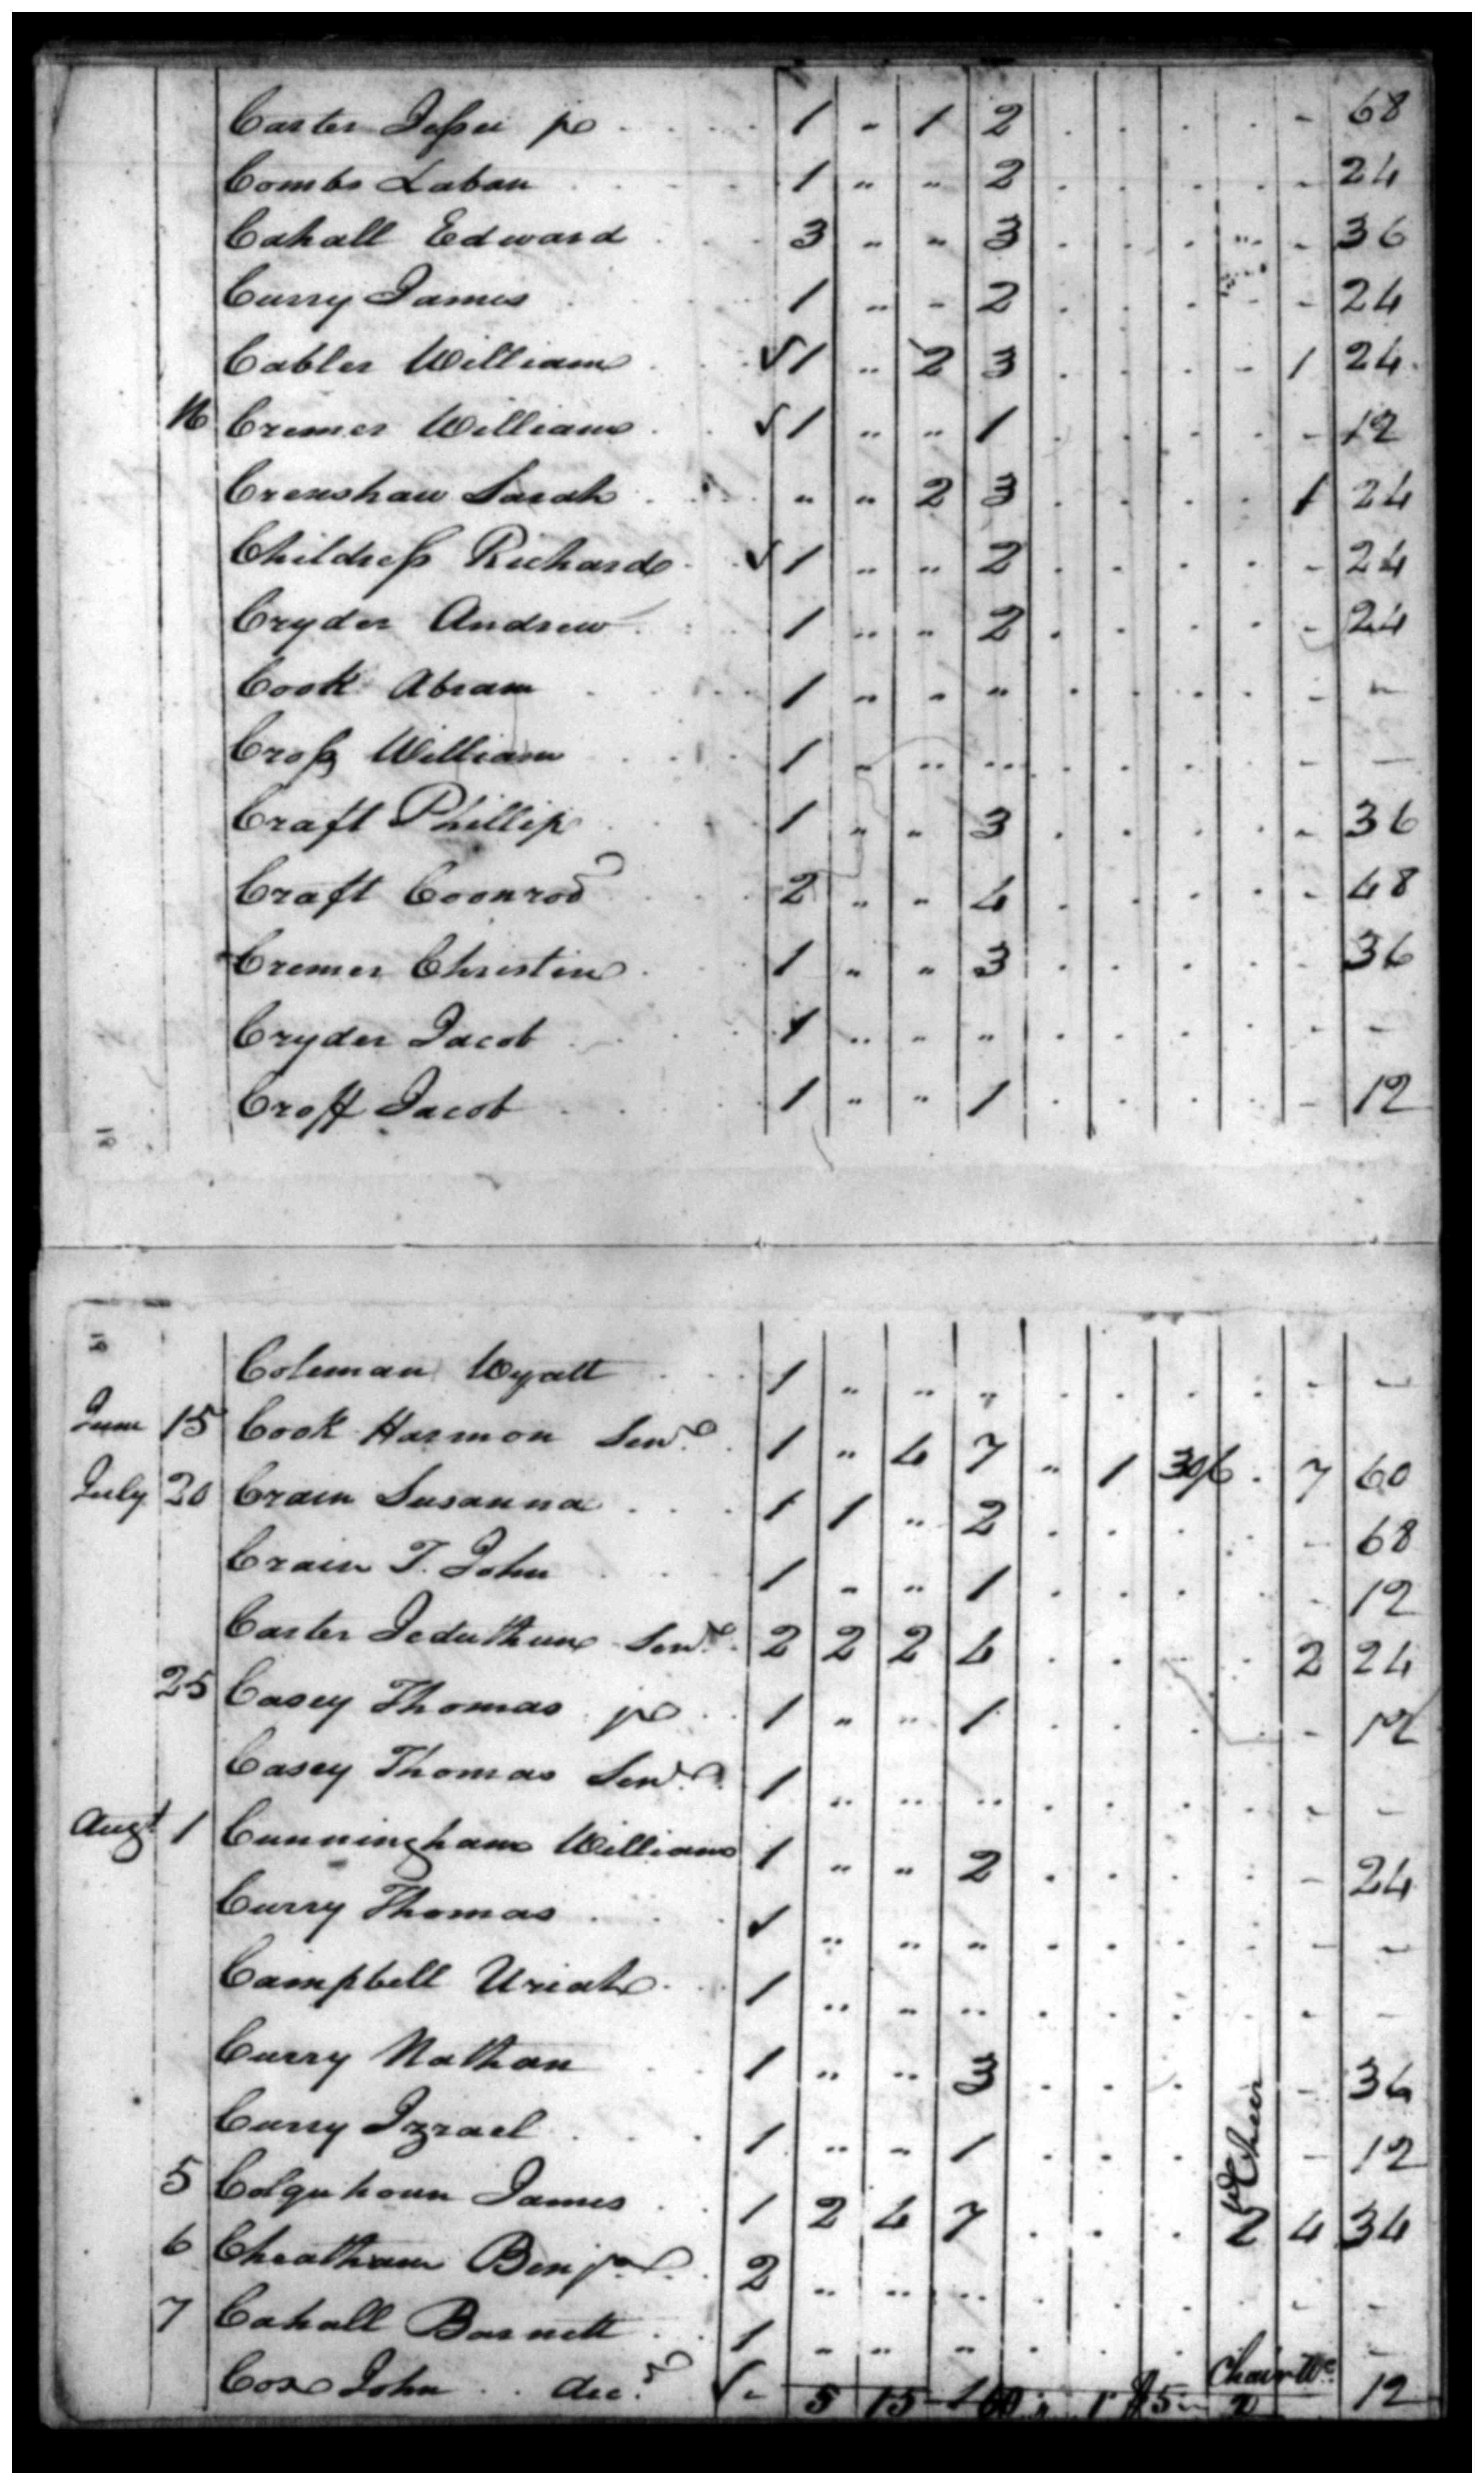 Carter Jesse jr 1 - 1 2 . . . . - 68
Combs Laban 1 " " 2 . . . . - 24
Cahall Edward 3 " " 3 . . . " - 36
Curry James 1 " " 2 . . . - - 24
Cabler William √1 " 2 3 . . . - 1 24
16 Cremer William √1 " " 1 . . . . - 12
Crenshaw Sarah " " 2 3 . . . . 1 24
Childress Richard √1 " " 2 . . . . - 24
Cryder Andrew 1 " " 2 . . . . - 24
Cook Abram 1 " " " . . . . - -
Cross William 1 " " " . . . . - -
Craft Phillip 1 " " 3 . . . . - 36
Craft Coonrod 2 " " 4 . . . . - 48
Cremer Christin 1 " " 3 . . . . - 36
Cryder Jacob 1 " " " . . . . - -
Croft Jacob 1 " " 1 . . . . - 12
Coleman Wyatt 1 " " " . . . . - -
June 15 Cook Harmon Senr 1 " 4 7 " 1 30/6 . 7 60
July 20 Crain Susanna 1 1 " 2 . . . . - 68
Crain T. John 1 " " 1 . . . . - 12
Carter Jeduthun Senr 2 2 2 4 . . - . 2 24
25 Casey Thomas jr 1 " " 1 . . . - 12
Casey Thomas Senr 1 " " " . . . . - -
Augt 1 Cunningham William 1 " " 2 . . . . - 24
Curry Thomas √ " " " . . . . - -
Campbell Uriah 1 " " " . . . . - -
Curry Nathan 1 " " 3 . . . - 36
Curry Izrael 1 " " 1 . . . - 12
5 Colquhoun James 1 2 4 7 . . . 2 4 34
6 Cheatham Benja 2 " " " . . . . - -
7 Cahall Barnett 1 " " " . . . -
Cox John decd 12
5 15